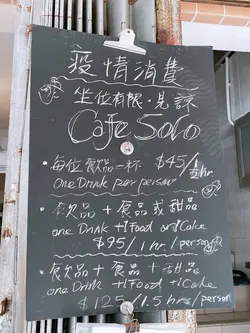 疫情消費
坐位有限·見諒
Cafe Solo
·每位飲品一杯 $45/½hr.
One Drink per person
·飲品+食品或甜品
one Drink +1Food or 1Cake
$95/1hr./person
·飲品+食品+甜品
one Drink +1Food +1Cake
$125/1.5hrs/person